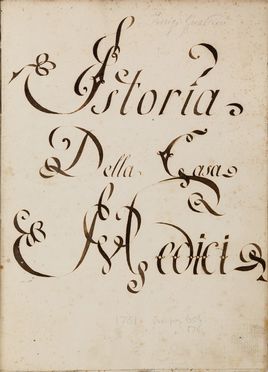 Istoria
Della Casa
Medici